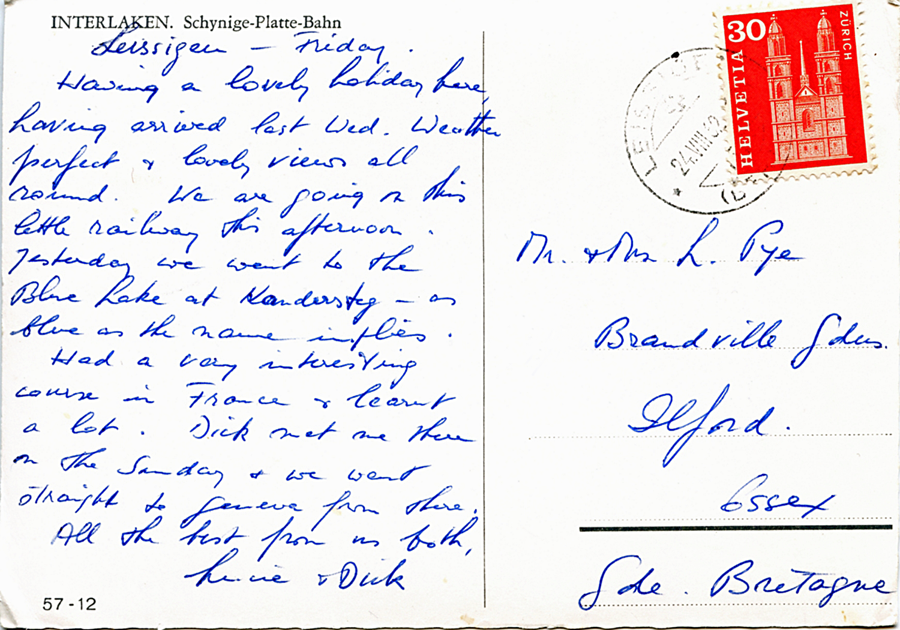 INTERLAKEN. Schynige-Platte-Bahn
Leissigen – Friday.
Having a lovely holiday here,
having arrived last Wed. Weather
perfect & lovely views all
round. We are going on this
little railway this afternoon.
Yesterday we went to the
Blue Lake at Kandersteg – as
blue as the name implies.
Had a very interesting
course in France & learnt
a lot. Dick met me there
on the Sunday & we went
straight to Geneva from there.
All the best from us both,
& Dick
57-12
30
HELVETIA
ZÜRICH
24.VIII.
Mr. & Mrs L. Pye
Brandville Gdns.
Ilford.
Essex
Gde. Bretagne